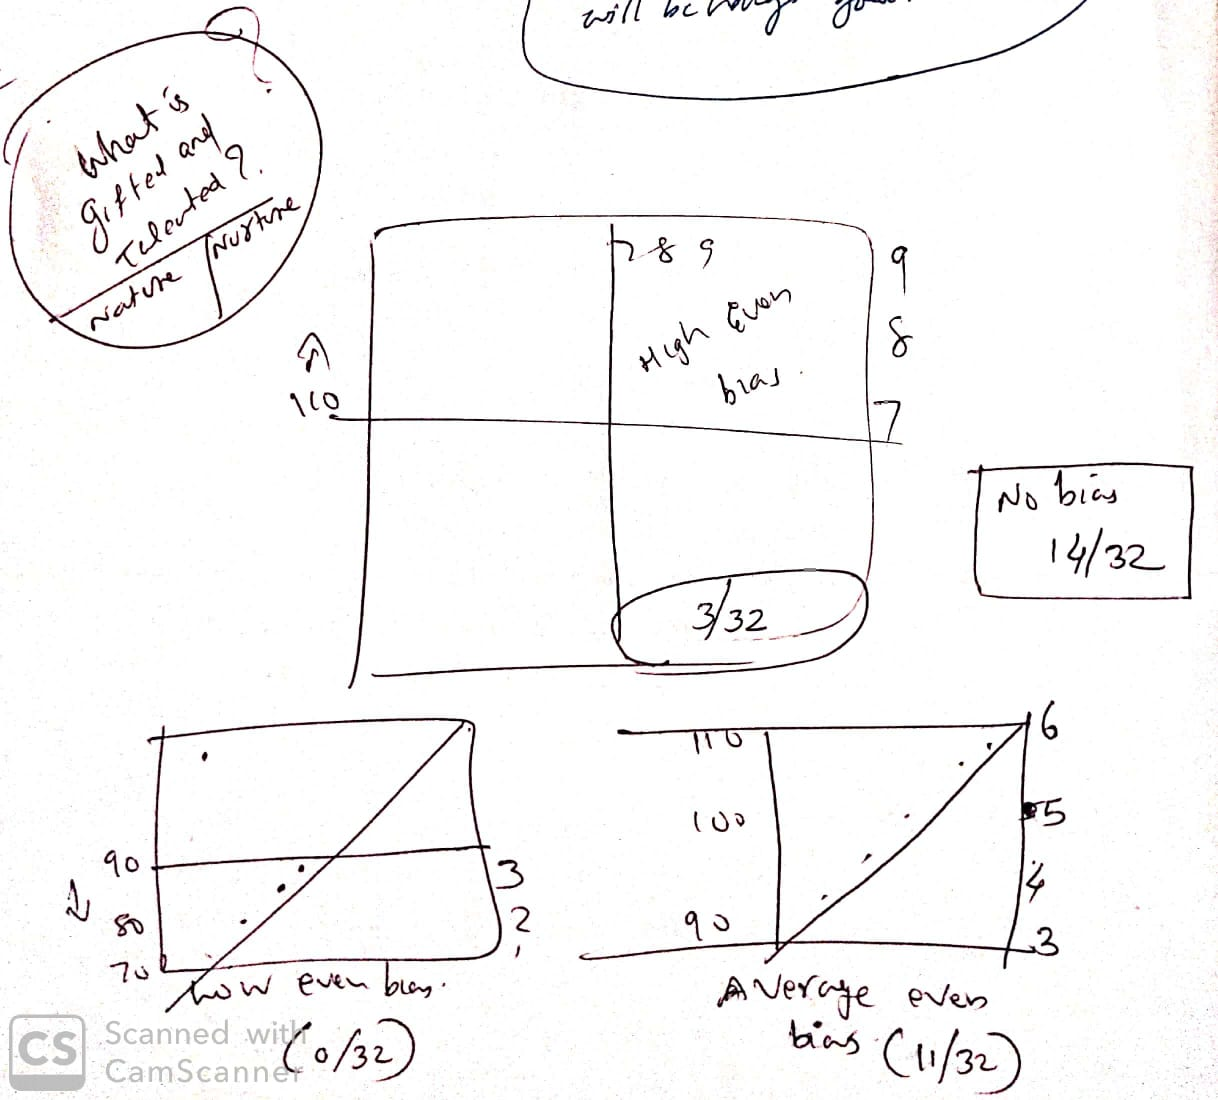 will be
?
What is
gifted and
Talented?
Nature
Nurture
7 8 9
9
8
7
High Even
bias.
110
No bias
14/32
3/32
90
80
70
3
2
1
Low even bias.
(0/32)
110
100
90
6
5
4
3
Average even
bias (11/32)
CS
Scanned with
CamScanner